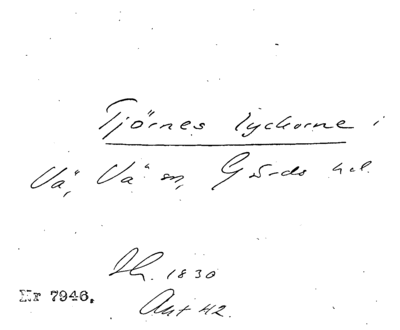 Tjörnes lyckorne i
Vä, Vä sn, Gärds hd.
Sk. 1830
Nr 7946.
Akt 42.